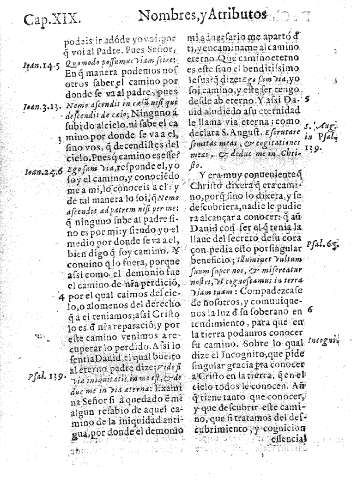 Cap. XIX. Nombres, y Atributos
podais ir adóde yo voi que
voi al Padre. Pues Señor,
Ioan. 14. 5 Quomodo possumus viam scire;
En q̃ manera podemos nos
otros saber el camino por
donde se va al padre, pues
Ioan. 3. 13. Nemo ascendit in cœlũ nisi qui
descendit de cœlo; Ninguno a
subido al cielo, ni sabe el ca
mino por donde se va a el,
sino vos, q̃ decendistes del
cielo. Pues q̃ camino es esse?
Ego sum via, responde el, yo
soi el camino, y conocedme
a mi, lo conoceis a el: y de
tal manera lo soi, q̃ Nemo
ascendit ad patrem nisi per me:
q̃ ninguno sube al padre si
no es por mi y siẽdo yo el
medio por donde se va a el,
bien digo q̃ soy camino. Y
conuino q̃ lo fuera, porque
assi como el demonio fue
el camino de nr̃a perdiciõ,
4 por el qual caimos del cie
lo, o a lo menos del derecho
q̃ a el teniamos; assi Cristo
lo es d̃ nr̃a reparaciõ; y por
este camino venimos a re
cuperar lo perdido. Assi lo
sentia Dauid, el qual buelto
Psal. 139. al eterno padre dize; Vide si
via iniquitatis in me est, & de
duc me in via eterna: Exami
na Señor si a quedado ẽ mi
algun resabio de aquel ca
mino de la iniquidad anti
gua, por donde el demonio
mi aduersario me apartó d̃
ti, y encaminame al camino
eterno. Que camino eterno
es este sino el benditissimo
Iesus? q̃ dize; Ego sum via, yo
soi, camino, y este ser tengo
desde ab eterno. Y assi Da 5
uid aludiẽdo a su eternidad
le llama via eterna; como
declara S. August. Scrutare S. Aug.
semitas meas, & cogitationes Psal.
meas, & deduc me in Chri- 139.
sto.
Y era muy conueniente q̃
Christo dixera q̃ era cami-
no, porq̃ sino lo dixera, y se
descubriera, nadie le pudie
ra alcançar a conocer: q̃ aũ
Dauid con ser el q̃ tenia la
llaue del secreto de su cora
çon pedia esto por singular Psal. 66.
beneficio; illuminet vultum
suum super nos, & misereatur
nostri, vt cognoscamus in terra
viam tuam: Compadezcase
de nosotros, y comunique-
nos la luz d̃ su soberano en 6
tendimiento, para que en
la tierra podamos conocer
su camino. Sobre lo qual
dize el Incognito, que pide Incogni
singular gracia pra conocer
a Cristo en la tierra, q̃ en el
cielo todos le conocen. Aũ
q̃ tiene tanto que conocer,
y que descubrir este cami-
no, que si tratamos del des-
cubrimiento, y cognicion
essencial